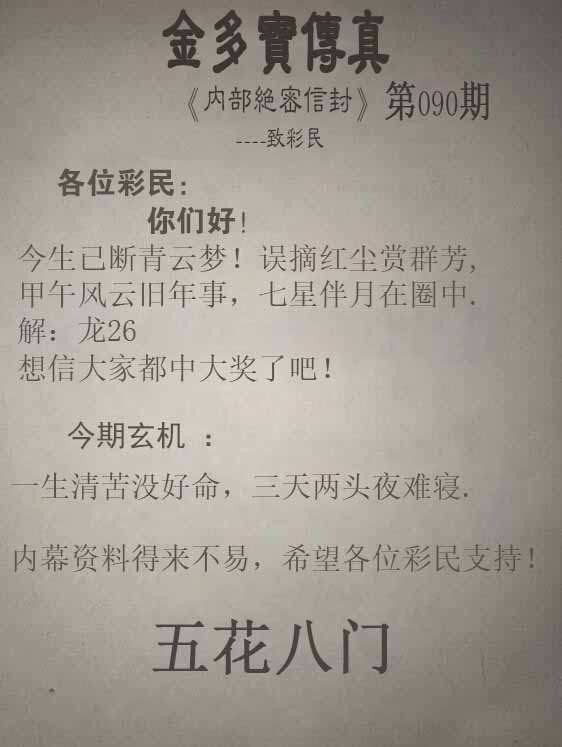 金多寶傳真
《内部絶密信封》第090期
----致彩民
各位彩民:
你们好!
今生已断青云梦！误摘红尘赏群芳,
甲午风云旧年事，七星伴月在圈中.
解：龙26
想信大家都中大奖了吧！
今期玄机 ：
一生清苦没好命，三天两头夜难寝.
内幕资料得来不易，希望各位彩民支持！
五花八门